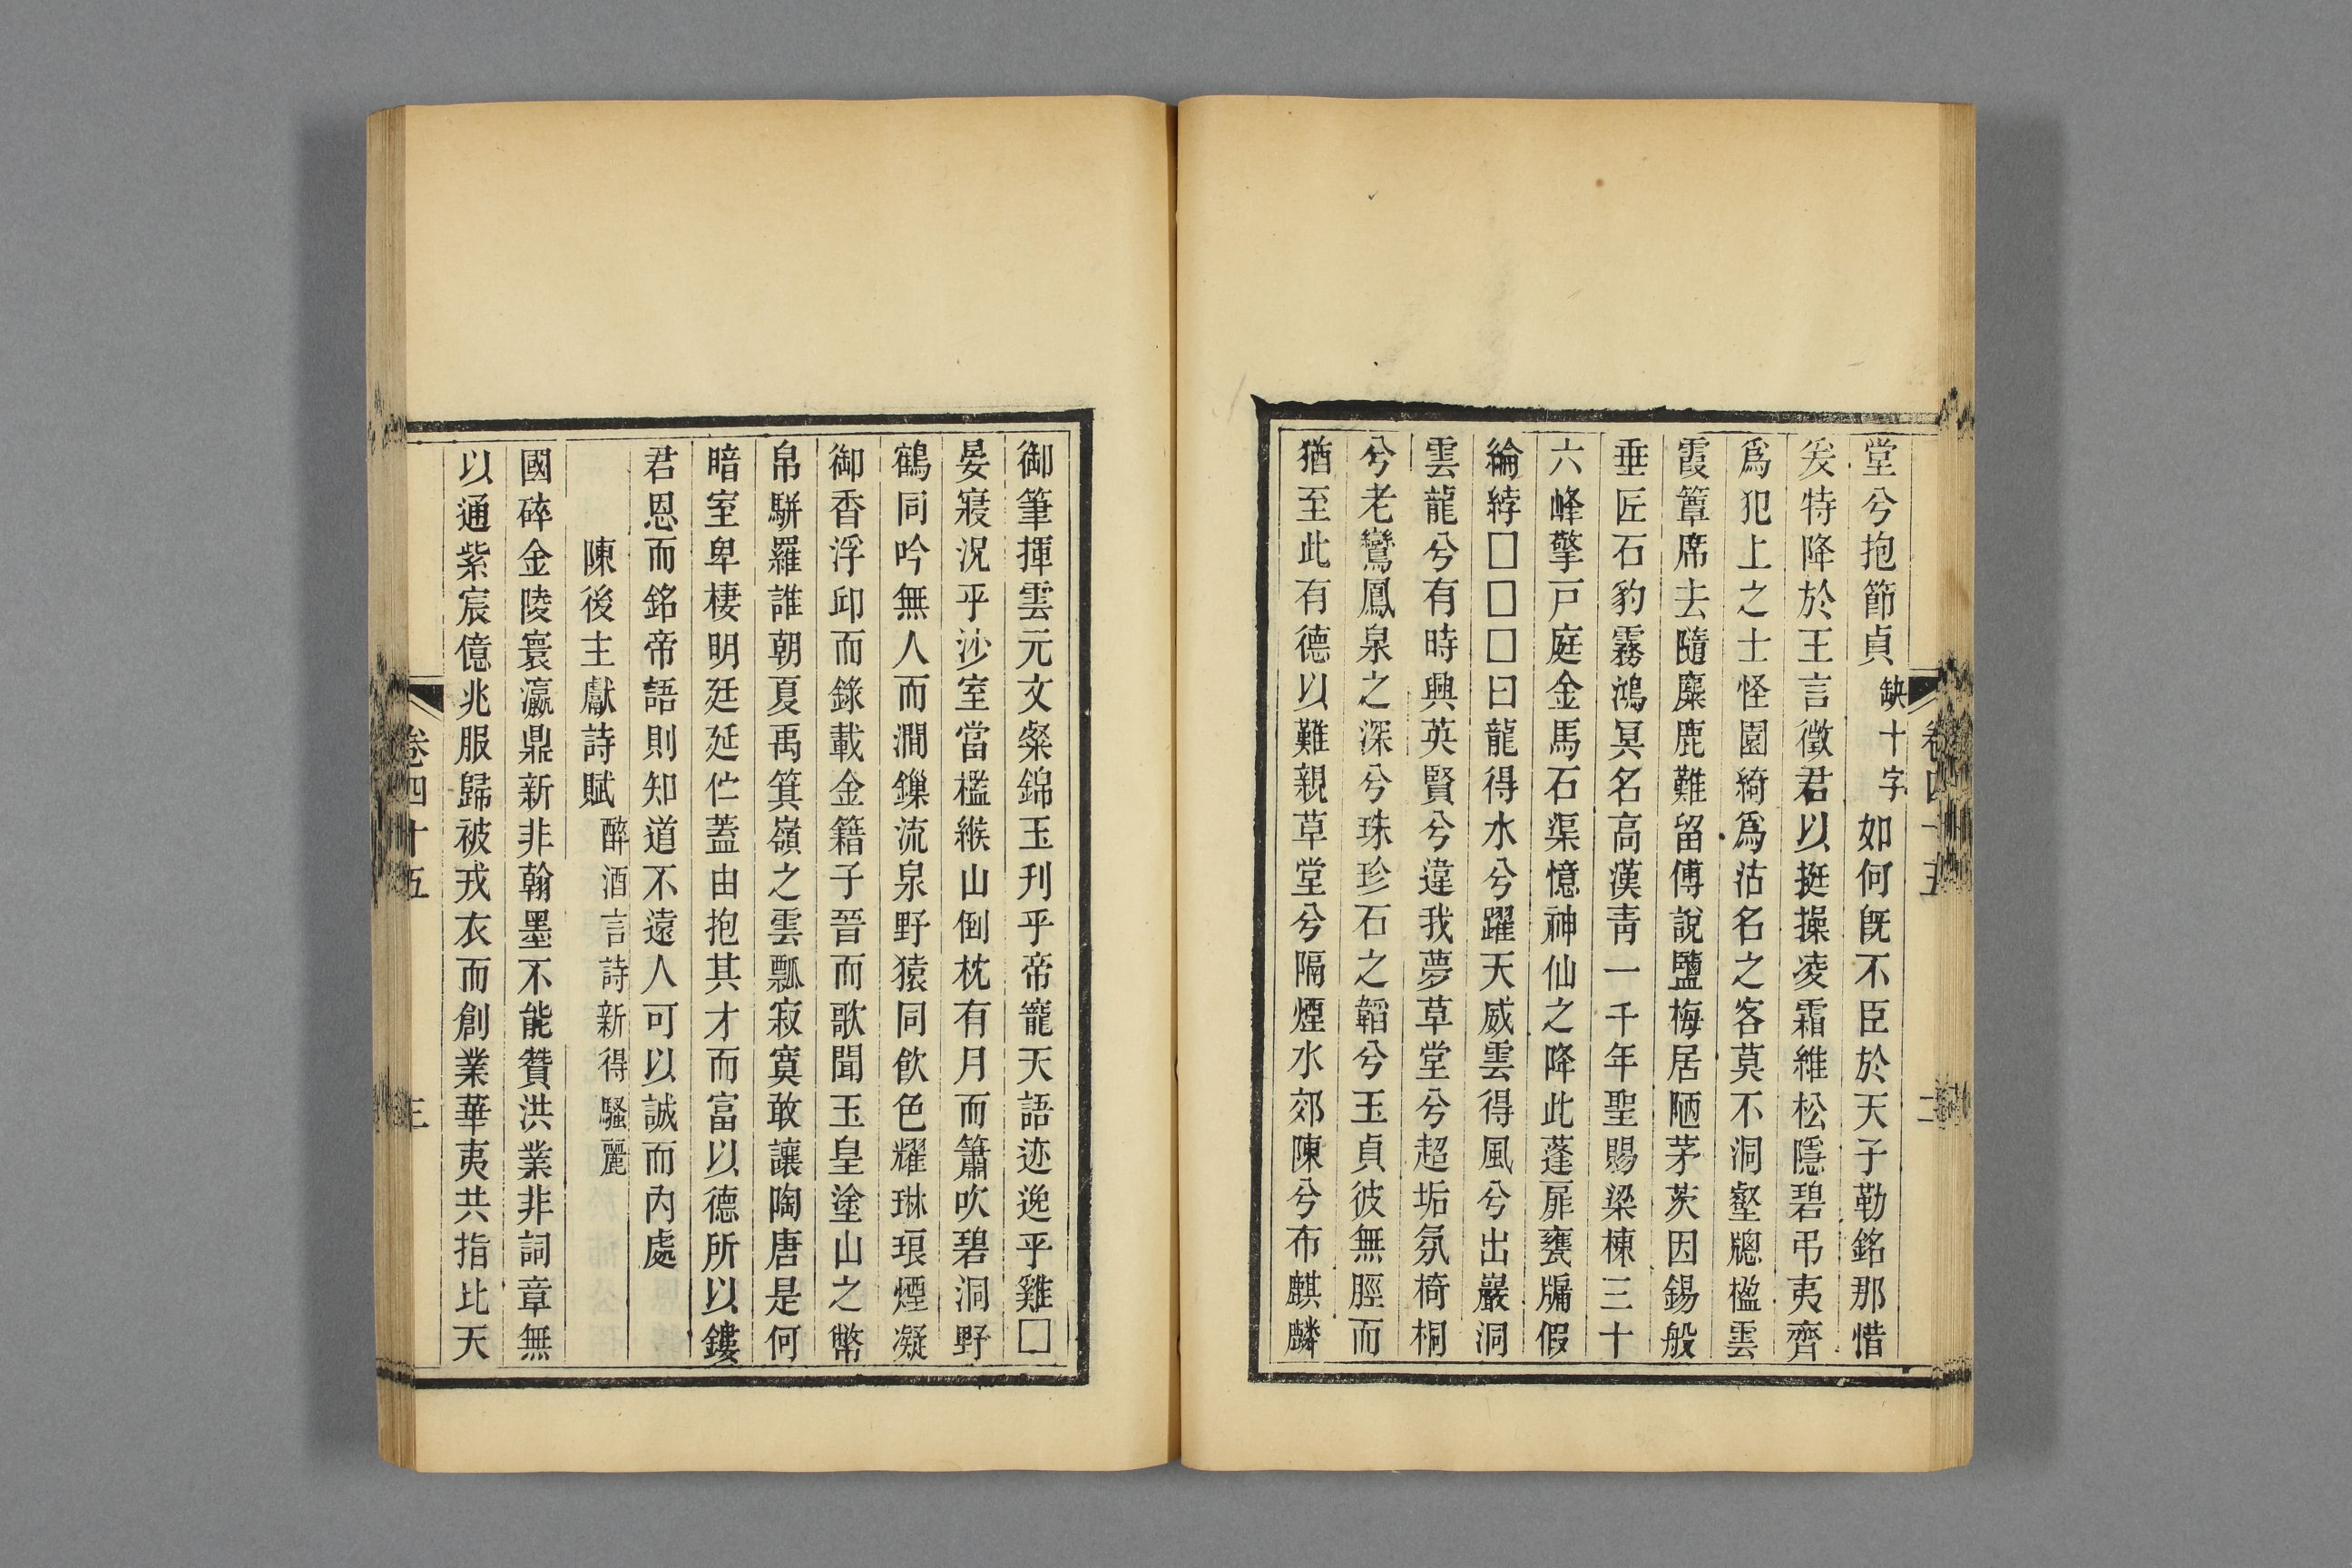 堂兮抱節貞缺十字如何旣不臣於天子勒銘那惜
矣特降於王言徵君以挺操凌霜維松隱碧弔夷齊
爲犯上之士怪園綺爲沽名之客莫不洞壑牕楹雲
霞簟席去隨麋鹿難留傅說鹽梅居陋茅茨因錫般
垂匠石豹霧鴻冥名高漢靑一千年聖賜梁棟三十
六峰擎戸庭金馬石渠憶神仙之降此蓬扉甕牖假
綸綍□□□曰龍得水兮躍天威雲得風兮出巖洞
雲龍兮有時興英賢兮違我夢草堂兮超垢氛椅桐
兮老鸞鳳泉之深兮珠珍石之韜兮玉貞彼無脛而
猶至此有德以難親草堂兮隔煙水郊陳兮布麒麟
卷四十五
二
御筆揮雲元文粲錦玉刋乎帝寵天語迹逸乎雞□
晏寢況乎沙室當檻緱山倒枕有月而簫吹碧洞野
鶴同吟無人而澗鏁流泉野猿同飮色耀琳琅煙凝
御香浮邱而錄載金籍子晉而歌聞玉皇塗山之幣
帛駢羅誰朝夏禹箕嶺之雲瓢寂寞敢讓陶唐是何
暗室卑棲明廷延伫蓋由抱其才而富以德所以鏤
君恩而銘帝語則知道不遠人可以誠而內處
陳後主獻詩賦醉酒言詩新得騷麗
國碎金陵寰瀛鼎新非翰墨不能贊洪業非詞章無
以通紫宸億兆服歸被戎衣而創業華夷共指比天
卷四十五
三